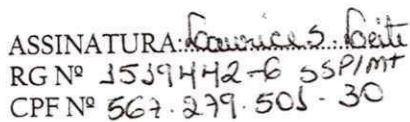 ASSINATURA: Laurice S. Leite
RG Nº 1519442-6 SSP/MT
CPF Nº 567.279.501-30